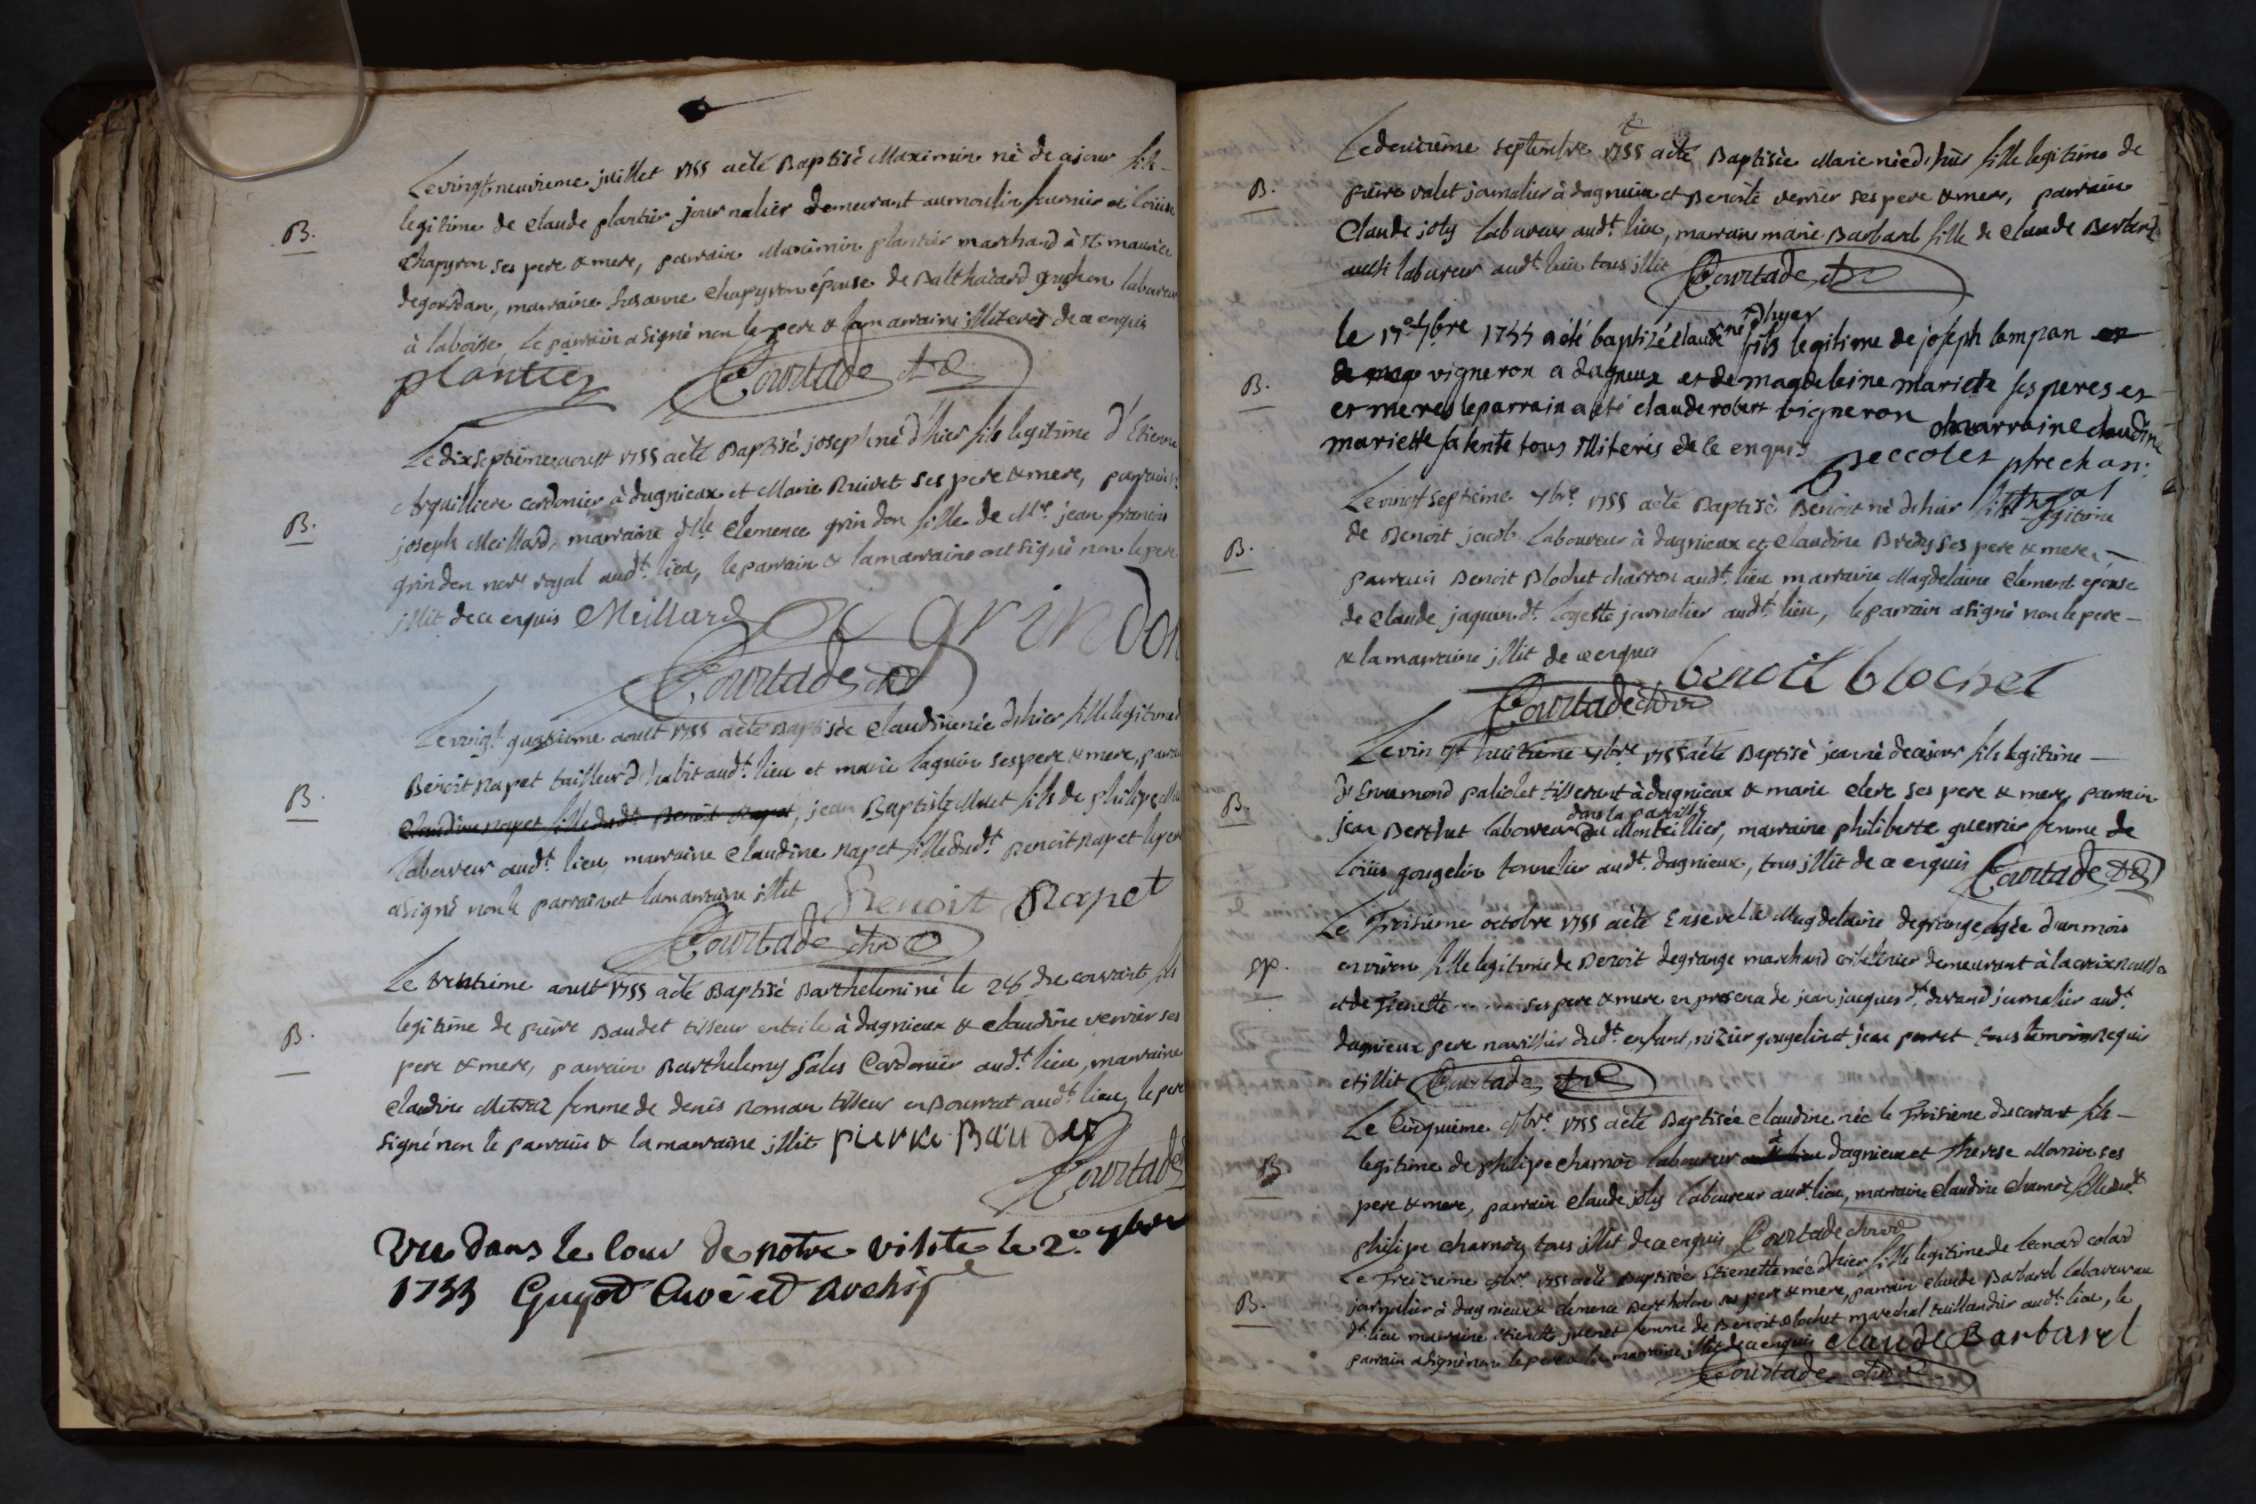 Le vingt neuvieme juillet 1755 a été Baptisé Maximin né de ce jour fils
B.
legitime de Claude plantier journalier demeurant au moulin et Loüise
Chapyron ses pere & mere, parrain Maximin plantier marchand à St. maurice
de gourdan, marraine Susanne Chapyron épouse de Balthazard laboureur
à laboisse le parrain a signé non le pere & la marraine illiterés de ce enquis
plantier Courtade
Le dix septieme aoust 1755 a été Baptisé joseph né d'hier fils legitime d'Etienne
B.
Arquilliere cordonier à dagnieux et Marie Ruivet ses pere & mere, parrain
joseph Meillard, marraine dlle Clemence grindon fille de Mre. jean francois
grindon nore royal audt. lieu, le parrain & la marraine ont signé non le pere
illit de ce enquis Meillard grindon
Courtade
Le vingt quatrieme aoust 1755 a été Baptisée Claudine née d'hier fille legitime
B.
Benoit Rapet tailleur d'habit audt. lieu et marie laguin ses pere & mere,
Claudine Rapet fille dudt. Benoit Rapet, jean Baptiste Muet fils de philipe
laboureur audt. lieu, marraine Claudine Rapet fille dudt. Benoit Rapet le pere
a signé non le parrain et la marraine illit
Benoit Rapet
Courtade
Le trentieme aoust 1755 a été Baptisé Barthelemi né le 28 du courant fils
B.
legitime de pierre Baudet tisseur en toile à dagnieux & Claudine verrier ses
pere & mere, parrain Barthelemy Sales Cordonier audt. lieu, marraine
Claudine Metraz femme de denis Roman tisseur en Bourrat audt. lieu, le pere
signé non le parrain & la marraine illit pierre Baudet
Courtade
Vu dans le cour de notre visite le 2e 7bre
1755 Guyot Curé et Archip.
Le deuxieme septembre 1755 a été Baptisée Marie née d'hier fille legitime de
B.
pierre valet journalier à dagnieux et Benoite verrier ses pere & mere, parrain
Claude joly laboureur audt. lieu, marraine marie Barbarel fille de Claude Barbarel
aussi laboureur audt. lieu tous illit Courtade
le 17e 7bre 1755 a été baptizé claude né d'hyer fils legitime de joseph lempan et
B.
de mag vigneron a dagneux et de magdeleine mariette ses peres et
et meres le parrain a été claude robert vigneron la marraine claudine
mariette sa tente tous illiterés de ce enquis Peccolet ptre chan.
Le vingt septieme 7bre. 1755 a été Baptisé Benoit né d'hier fils legitime
B.
de Benoit jacob laboureur à dagnieux et Claudine Bredy ses pere & mere,
parrain Benoit Blochet charron audt. lieu marraine Magdelaine Clement épouse
de Claude jaquen dt. logette journalier audt. lieu, le parrain a signé non le pere
& la marraine illit de ce enquis
benoit blochet
Courtade
Le vingt huitieme 7bre. 1755 a été Baptisé jean né de ce jour fils legitime
B.
d'Ennemond paliolet tisserant à dagnieux & marie Clere ses pere & mere, parrain
dans la paroisse
jean Berthet laboureur du Montellier, marraine philiberte guerrier femme de
Loüis gougelin tonnelier audt. dagnieux, tous illit de ce enquis Courtade
Le Troisieme octobre 1755 a été Ensevelie Magdelaine degrange agée d'un mois
pp.
environ fille legitime de Benoit degrange marchand demeurant à la croix rousse
et de Pierrette ses pere & mere en presence de jean jacques dt. durand journalier audt.
dagnieux pere nourissier dudt. enfant, nizier gougelin et jean perret tous temoins requis
et illit Courtade
Le Cinquieme 8bre. 1755 a été Baptisée Claudine née le Troisieme du courant fille
B.
legitime de philipe charnoz laboureur à dagnieux et Therese Morrin ses
pere & mere, parrain Claude joly laboureur audt. lieu, marraine Claudine Charnoz fille dudt.
philipe charnoz tous illit de ce enquis Courtade
Le Treizieme 8bre. 1755 a été Baptisée Etienette née d'hier fille legitime de Leonard colard
B.
journalier à dagnieux & clemence Bertholon ses pere & mere, parrain Claude Barbarel laboureur au
dt. lieu marraine Etienette juenet femme de Benoit Blochet marechal taillandier audt. lieu, le
parrain a signé non le pere & la marraine illit de ce enquis Claude Barbarel
Courtade